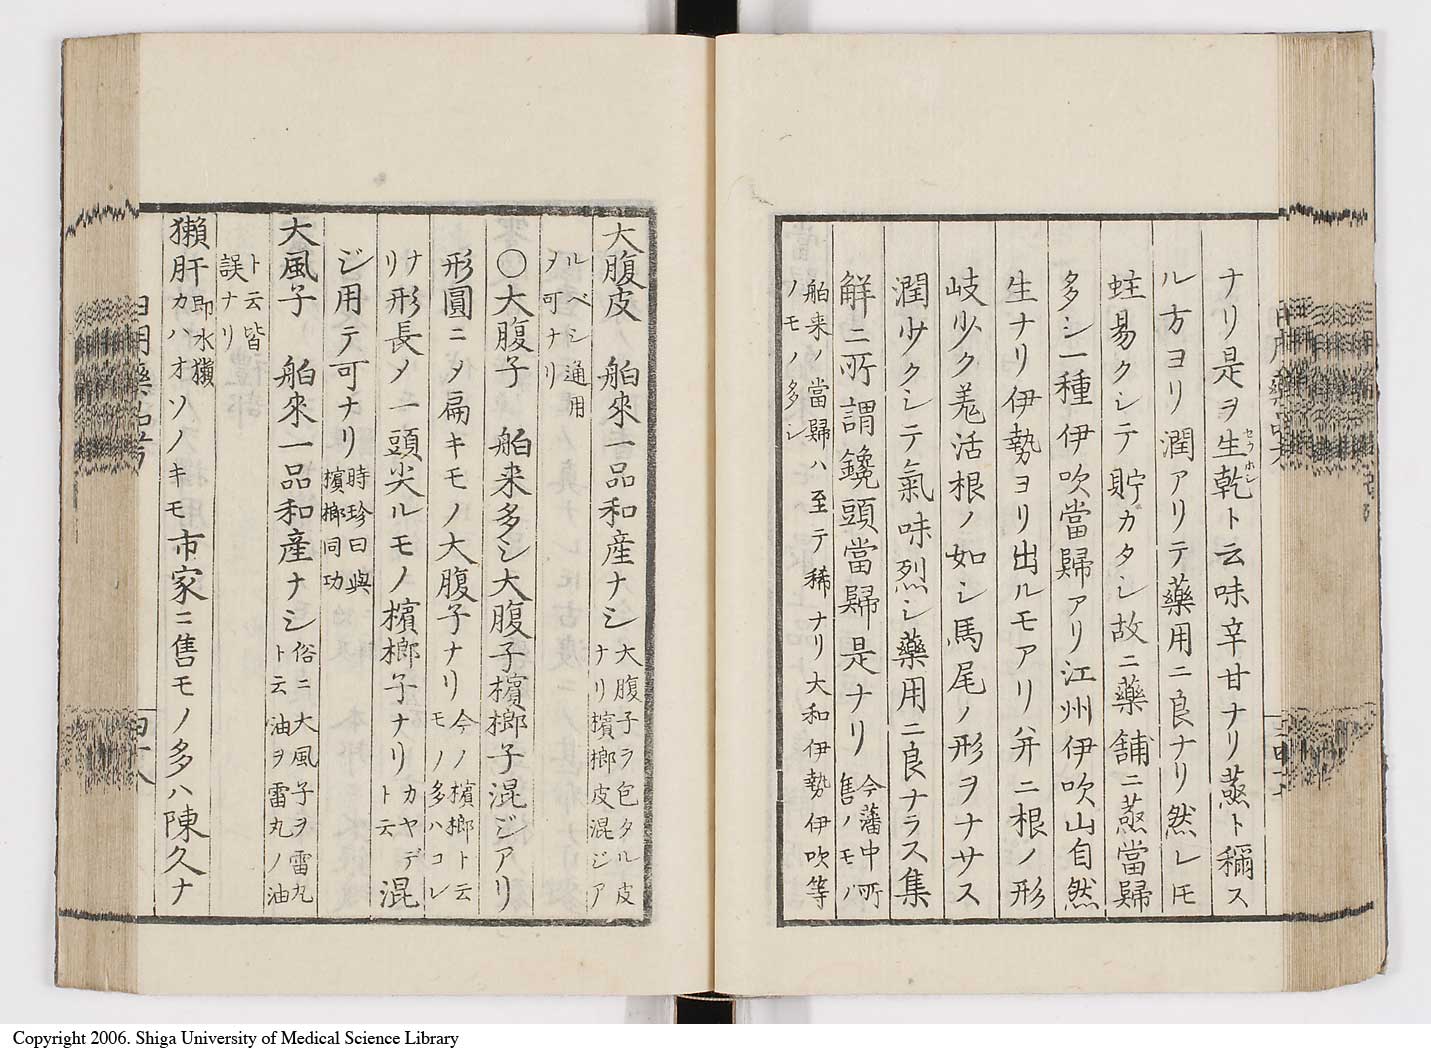 ナリ是ヲ生乾ト云味辛甘ナリ蒸ト稱ス
セウホシ
ル方ヨリ潤アリテ藥用ニ良ナリ然レ𪜈
蛀易クシテ貯カタシ故ニ藥舗ニ蒸當歸
多シ一種伊吹當歸アリ江州伊吹山自然
生ナリ伊勢ヨリ出ルモアリ并ニ根ノ形
岐少ク羌活根ノ如シ馬尾ノ形ヲナサス
潤少クシテ氣味烈シ藥用ニ良ナラス集
解ニ所謂鑱頭當歸是ナリ
今藩中所
售ノモノ
舶来ノ當歸ハ至テ稀ナリ大和伊勢伊吹等
ノモノ多シ
大腹皮 舶來一品和産ナシ
大腹子ヲ包タル皮
ナリ檳榔皮混ジア
ルベシ通用
ヲ可ナリ
〇大腹子 舶来多シ大腹子檳榔子混ジアリ
形圓ニ〆扁キモノ大腹子ナリ
今ノ檳榔ト云
モノ多ハコレ
ナリ
形長〆一頭尖ルモノ檳榔子ナリ
カヤデ
ト云
混
ジ用テ可ナリ
時珍曰與
檳榔同功
大風子 舶來一品和産ナシ
俗ニ大風子ヲ雷丸
ト云油ヲ雷丸ノ油
ト云皆
誤ナリ
獺肝
即水獺
カハオソノキモ市家ニ售モノ多ハ陳久ナ
日用藥品考
四十八
Copyright 2006. Shiga University of Medical Science Library